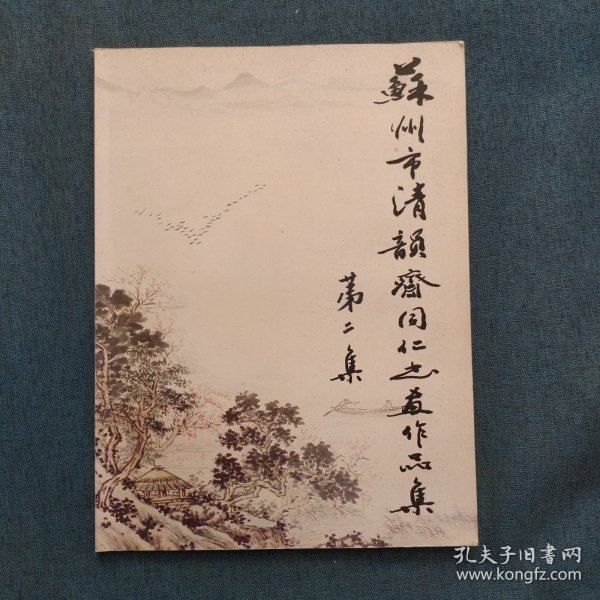 蘇州市清韻齋同仁书画作品集
第二集
孔夫子旧書网
www.kongfz.com